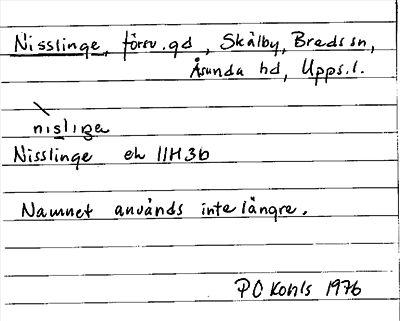 Nisslinge, försv. gd, Skälby, Breds sn,
Åsunda hd, Upps. l.
nislinge
Nisslinge ek 11H3b
Namnet används inte längre.
P O Kohls 1976